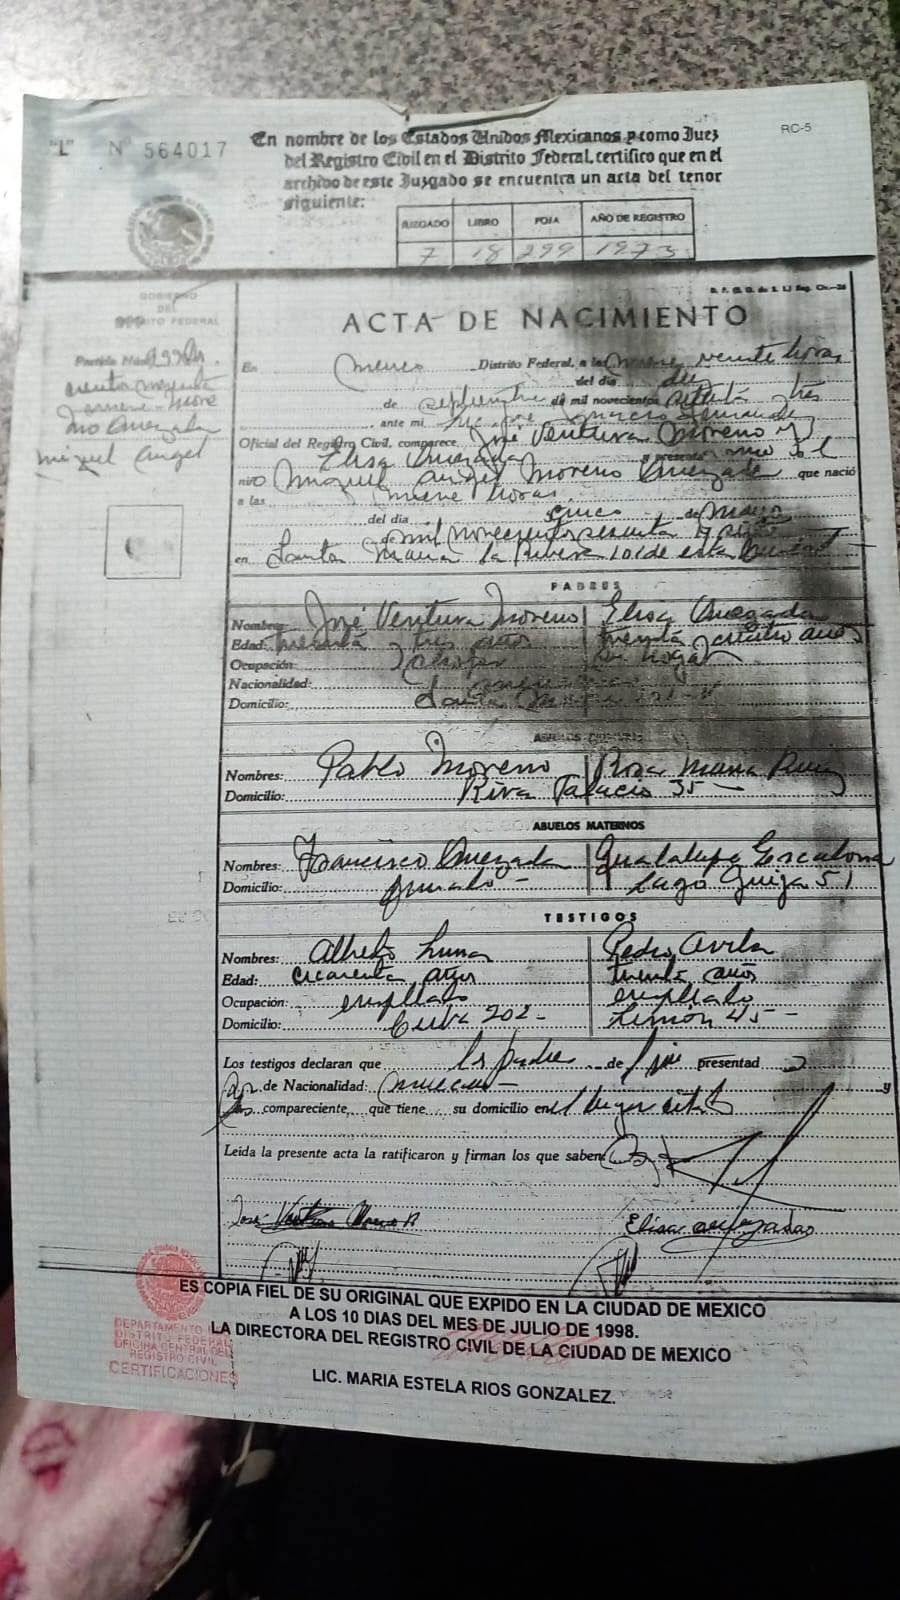 "L" Nº 564017
RC-5
En nombre de los Estados Unidos Mexicanos y como Juez
del Registro Civil en el Distrito Federal, certifico que en el
archivo de este Juzgado se encuentra un acta del tenor
siguiente:
JUZGADO LIBRO FOJA AÑO DE REGISTRO
7 18 299 1973
GOBIERNO
DEL
DISTRITO FEDERAL
Partida Núm.
Moreno Quezada
Miguel Angel
ACTA DE NACIMIENTO
En Distrito Federal, a las veinte horas
del día
de septiembre de mil novecientos setenta tres
ante mi
Oficial del Registro Civil, comparece José Ventura Moreno y
Elisa Quezada y presenta vivo al
niño Miguel Angel Moreno Quezada que nació
a las nueve horas
del día cinco de Mayo
mil novecientos sesenta y
en Santa Maria la Rivera 101 de esta
PADRES
Nombres: José Ventura Moreno Elisa Quezada
Edad: treinta y tres años treinta cuatro años
Ocupación: chofer su hogar
Nacionalidad:
Domicilio: Santa
ABUELOS
Nombres: Pablo Moreno Rosa Maria Ruiz
Domicilio: Riva Palacio 35
ABUELOS MATERNOS
Nombres: Francisco Quezada Guadalupe Escalona
Domicilio: finado - Lago Guija 51
TESTIGOS
Nombres: Alfredo Luna Pedro Avila
Edad: cuarenta años treinta años
Ocupación: empleado empleado
Domicilio: Cuba 202 - Limon 45 -
Los testigos declaran que los padres de presentado
son de Nacionalidad: mexicana - y
los comparecientes, que tiene su domicilio en el lugar citado
Leida la presente acta la ratificaron y firman los que saben.
José Ventura Moreno R
Elisa Quezada
ES COPIA FIEL DE SU ORIGINAL QUE EXPIDO EN LA CIUDAD DE MEXICO
A LOS 10 DIAS DEL MES DE JULIO DE 1998.
LA DIRECTORA DEL REGISTRO CIVIL DE LA CIUDAD DE MEXICO
LIC. MARIA ESTELA RIOS GONZALEZ.
DEPARTAMENTO
DISTRITO FEDERAL
OFICINA CENTRAL DEL
REGISTRO CIVIL
CERTIFICACIONES